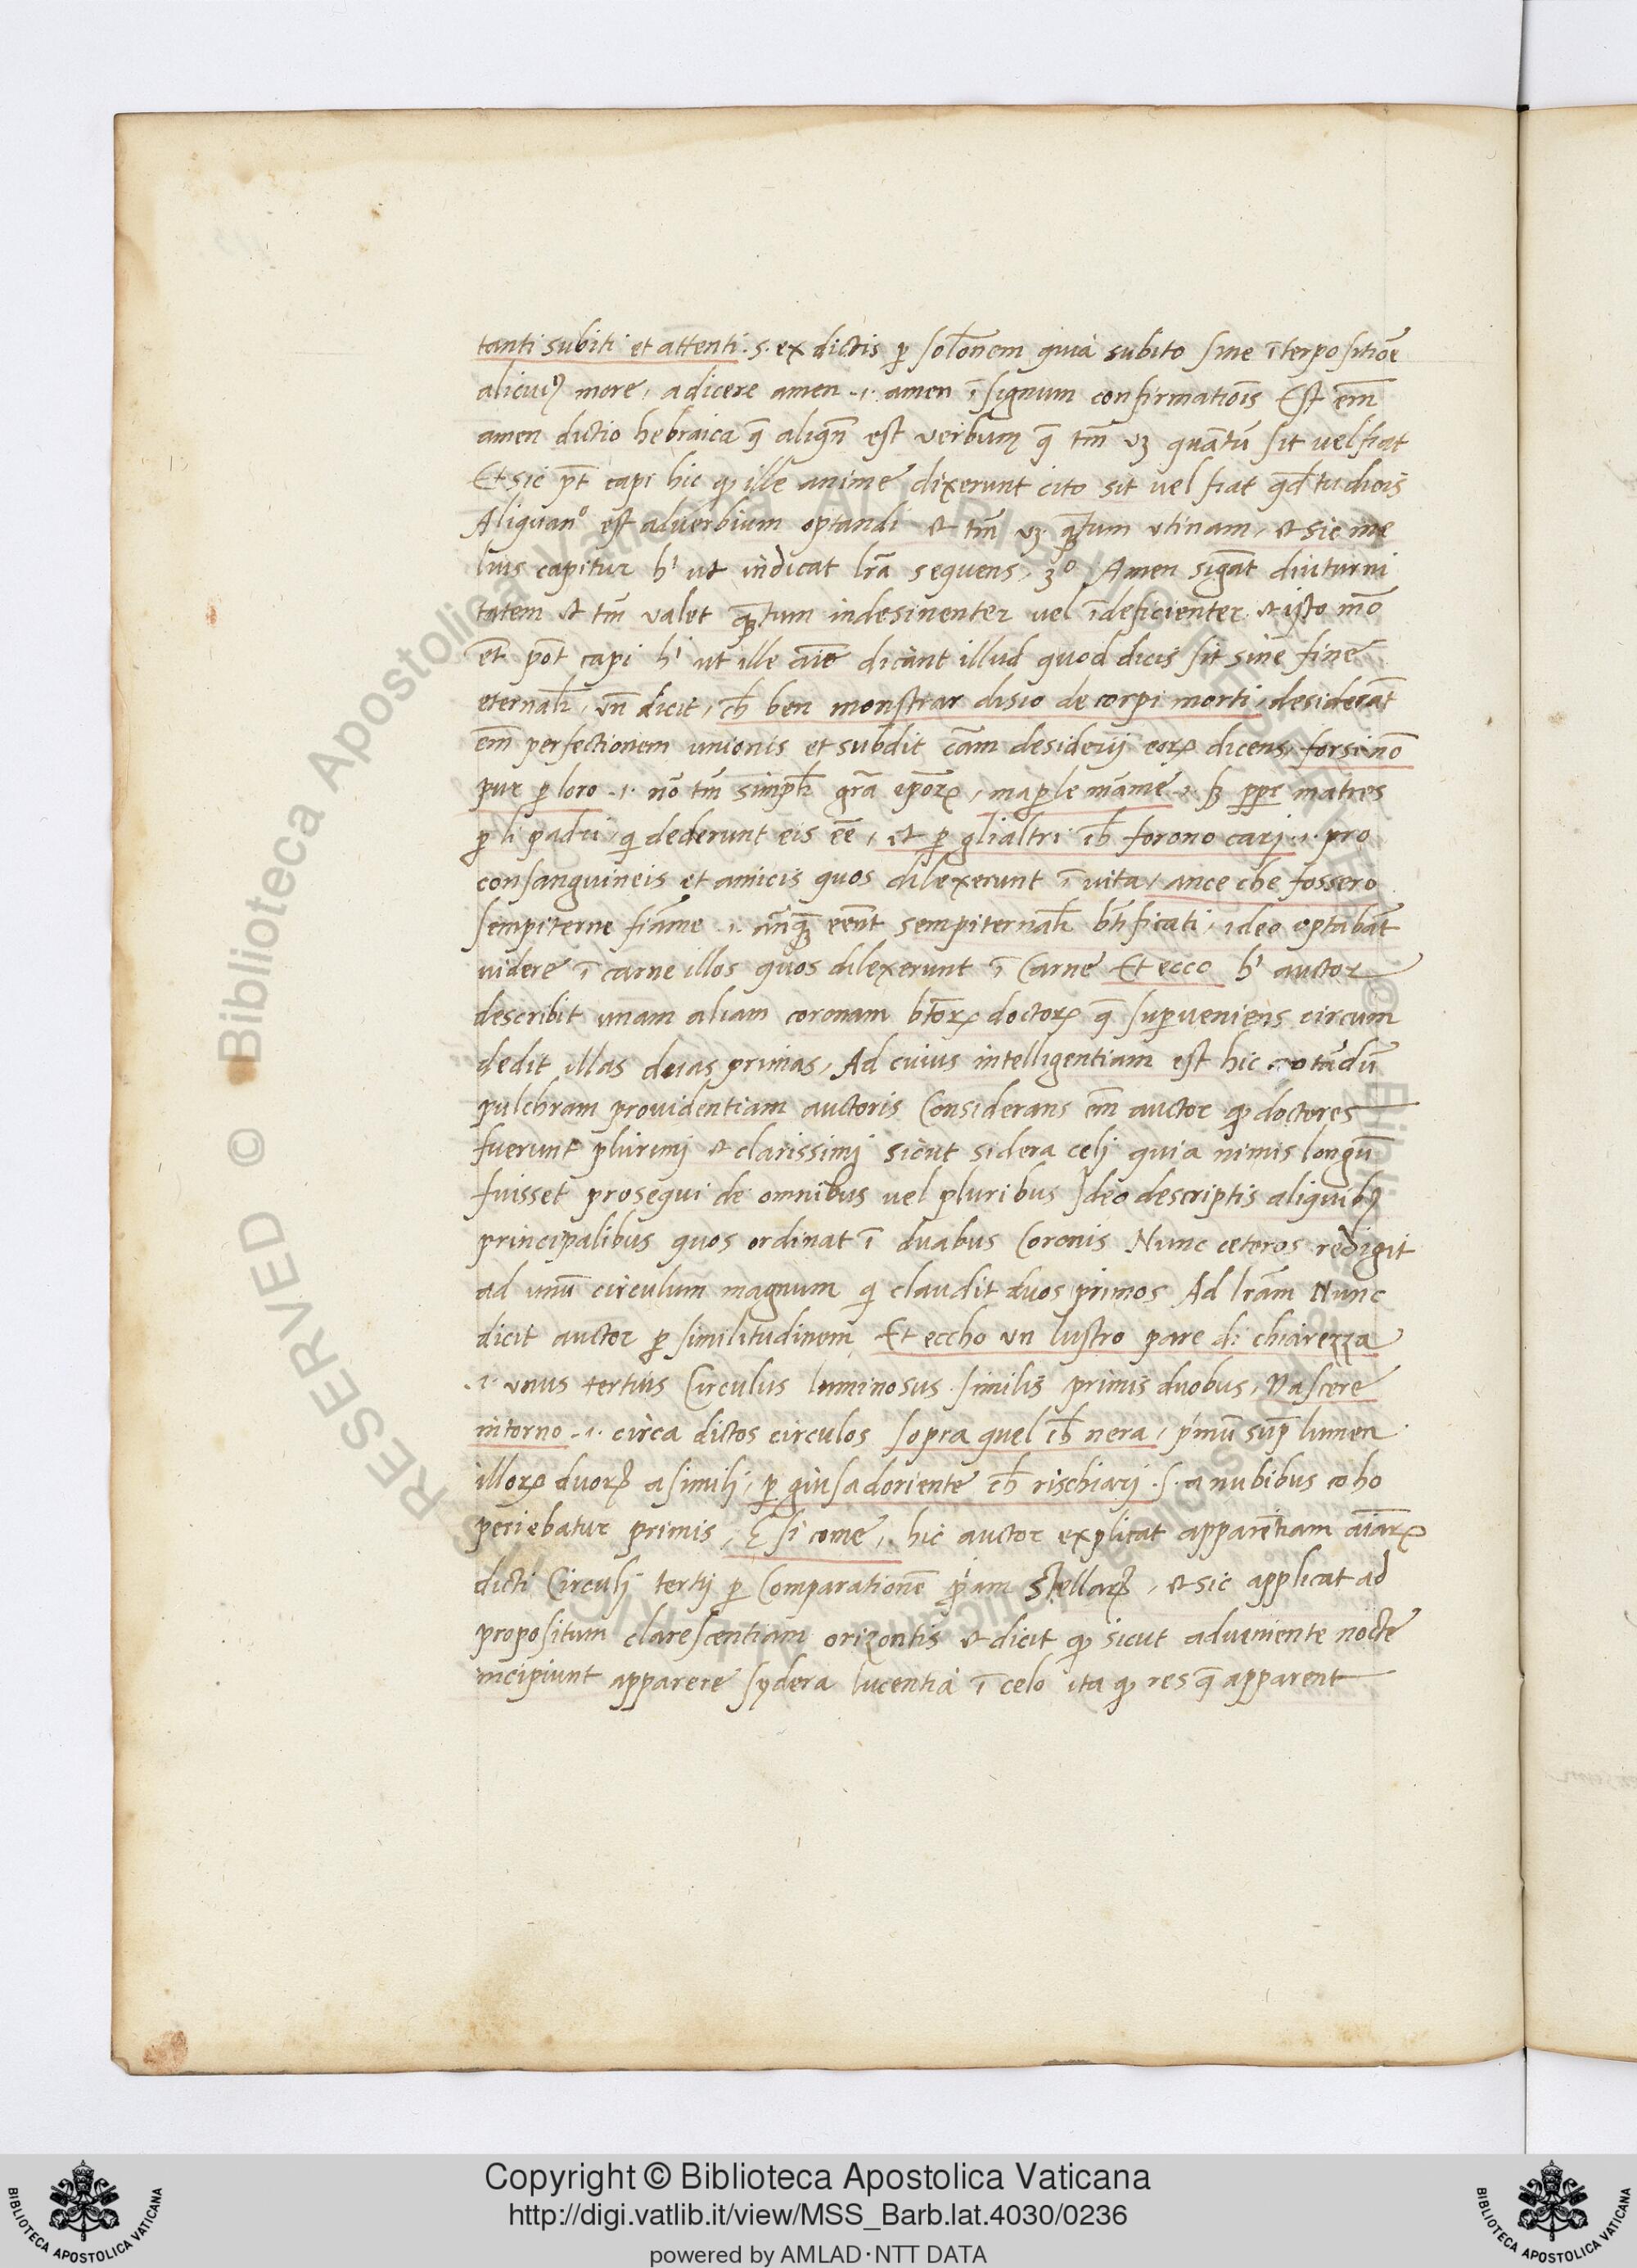 tanti subiti et attenti .s. ex dictis ꝑ solonem quia subito sine īterpositiōe
alicuiꝰ more, adicere amen .i. amen ī signum confirmatiōis Est em̄
amen dictio hebraica q̄ aliqn̄ est verbum q̄ tm̄ uꝫ quātū sit vel fiat
Et sic pt̄ capi hic ꝙ ille anime dixerunt cito sit uel fiat qd̄ tu dicis
Aliquanº est adverbium optandi et tm̄ uꝫ quātum utinam, et sic me
lius capitur h' ut indicat lr̄a sequens, 3º Amen sigāt diuturni
tatem et tm̄ valet quātum indesinenter uel īdeficienter et isto mō
et̄ pōt capi h' ut ille aīe dicānt illud quod dicis sit sine fine
eternalr̄, vn̄ dicit, ch̄ ben monstrar disio de corpi morti, desiderāt
em̄ perfectionem unionis et subdit cām desiderij eoꝝ dicens, forsi nō
pur ꝑ loro .i. nō tm̄ simplr̄ gr̄a ip̄oꝝ, ma ꝑ le māme .i. sꝫ ꝓpr matres
ꝑ li padri, qi dederunt eis eē, et ꝑ gli altri ch̄ forono carj .i. pro
consanguineis et amicis quos dilexerunt ī uita, ance che fossero
sempiterne fiāme .i. anq̄ꝫ eēnt sempiternalr̄ btīficati, ideo optabāt
uidere ī carne illos quos dilexerunt ī Carne Et ecco h' auctor
describit unam aliam coronam btōꝝ doctoꝝ q̄ suꝑveniens circum
dedit illas duas primas, Ad cuius intelligentiam est hic notādū
pulchram providentiam auctoris Considerans em̄ auctor ꝙ doctores
fuerunt plurimj et clarissimj sicut sidera celj quia nimis longū
fuisset prosequi de omnibus uel pluribus Ideo descriptis aliquibꝰ
principalibus quos ordinat ī duabus Coronis Nunc ceteros redigit
ad unū circulum magnum qi claudit duos primos Ad lr̄am Nunc
dicit auctor ꝑ similitudinem Et eccho un lustro pare di chiarezza
.i. unus tertius Circulus luminosus similis primis duobus, Nascere
intorno .i. circa dictos circulos sopra quel ch̄ nera, p'mū suꝑ lumen
illoꝝ duoꝝ a similj, ꝑ giusa doriente ch̄ rischiarj .s. a nubibus coho
periebatur primis, E si come, hic auctor explicat apparētiam aīaꝝ
dicti Circulj tertij ꝑ Comparationē p'am Stellaꝝ, et sic applicat ad
propositum clarescentiam orizontis et dicit ꝙ sicut adveniente nocte
incipiunt apparere sydera lucentia ī celo ita ꝙ res q̄ apparent
Copyright © Biblioteca Apostolica Vaticana
http://digi.vatlib.it/view/MSS_Barb.lat.4030/0236
powered by AMLAD·NTT DATA